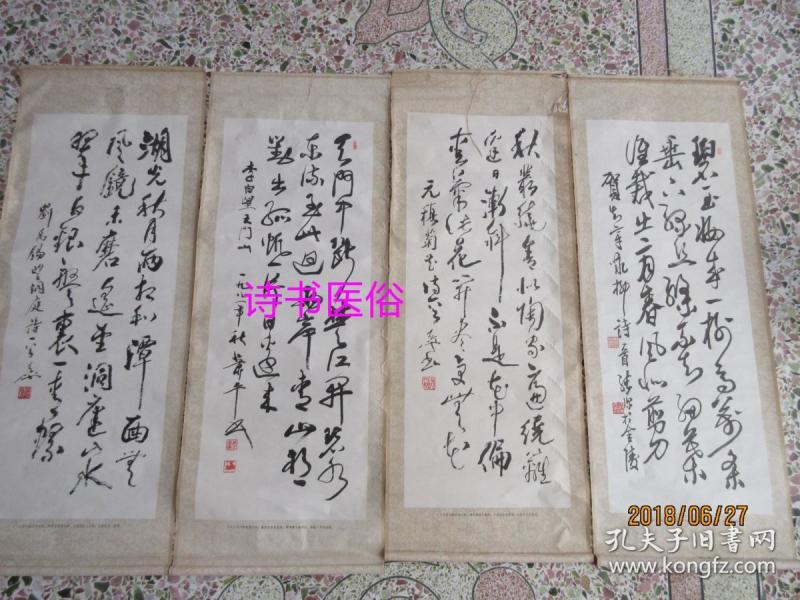 碧玉妆成一树高万条
垂下绿丝绦不知细叶
谁裁出二月春风似剪刀
贺知章咏柳诗
秋丛绕舍似陶家遍绕篱
边日渐斜不是花中偏
爱菊此花开尽更无花
元稹菊花诗
天门中断楚江开碧水
东流至此回两岸青山相
对出孤帆一片日边来
李白望天门山 一九八一年秋
湖光秋月两相和潭面无
风镜未磨遥望洞庭山水
翠白银盘里一青螺
刘禹锡望洞庭诗
诗书医俗
2018/06/27
孔夫子旧书网
www.kongfz.com